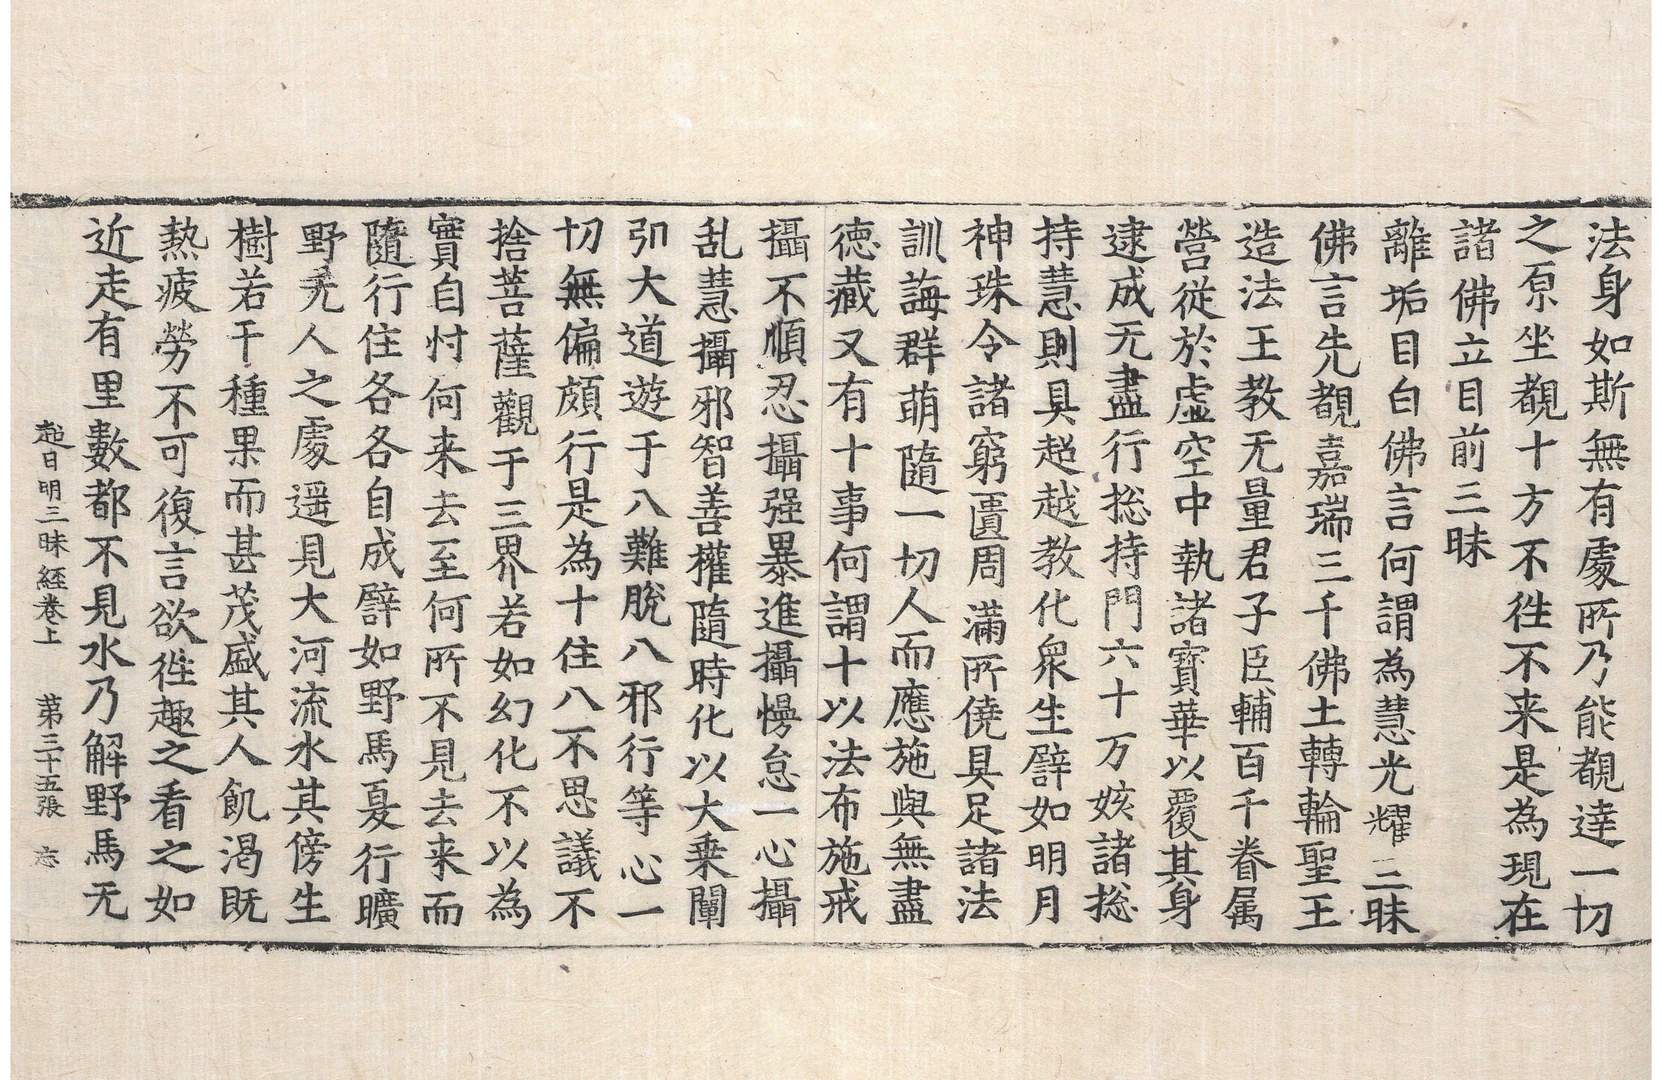 法身如斯無有處所乃能覩達一切
之原坐覩十方不徃不来是為現在
諸佛立目前三昧
離垢目白佛言何謂為慧光耀三昧
佛言先覩嘉瑞三千佛土轉輪聖王
造法王教无量君子臣輔百千眷属
營從於虛空中執諸寶華以覆其身
逮成无盡行捴持門六十万姟諸捴
持慧則具超越教化衆生譬如明月
神珠令諸窮匱周滿所僥具足諸法
訓誨群萌隨一切人而應施與無盡
徳藏又有十事何謂十以法布施戒
攝不順忍攝强暴進攝慢怠一心攝
乱慧攝邪智善權隨時化以大乗闡
引大道遊于八難脫八邪行等心一
切無偏頗行是為十住八不思議不
捨菩薩觀于三界若如幻化不以為
實自忖何来去至何所不見去来而
隨行住各各自成譬如野馬夏行曠
野无人之處遥見大河流水其傍生
樹若干種果而甚茂盛其人飢渴既
熱疲勞不可復言欲徃趣之看之如
近走有里數都不見水乃解野馬无
超日明三昧經卷上 第三十五張 忘